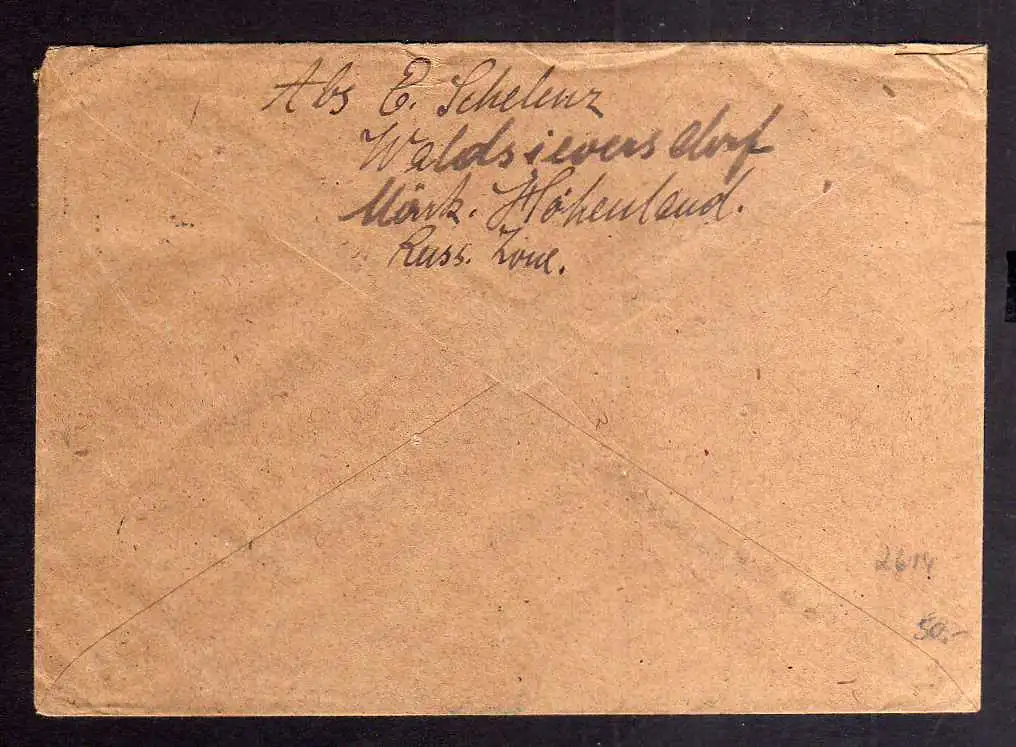 Abs E. Schelenz
Waldsieversdorf
Märk. Höhenland.
Russ. Zone.
2614
50.-